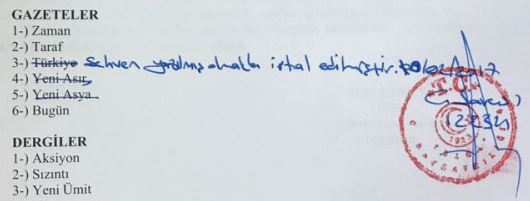 GAZETELER
1-) Zaman
2-) Taraf
3-) Türkiye Sehven yazılmış olmakla iptal edilmiştir.
4-) Yeni Asır
5-) Yeni Asya
6-) Bugün
T.C.
DERGİLER
1-) Aksiyon
2-) Sızıntı
3-) Yeni Ümit